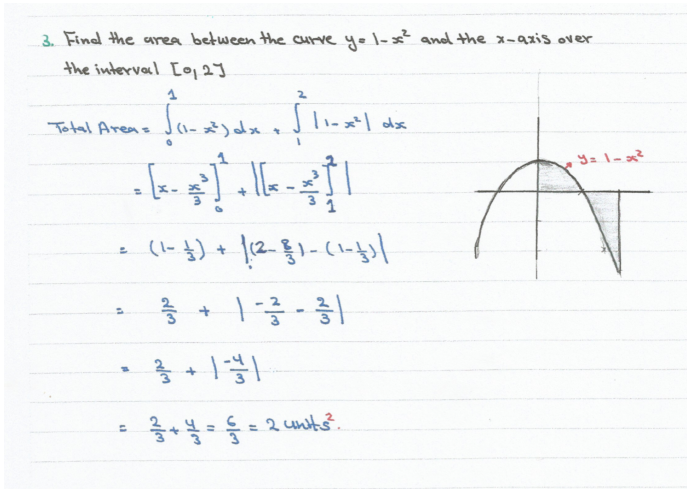 3. Find the area between the curve y = 1 - x² and the x-axis over
the interval [0, 2]
Total Area = ∫₀¹ (1 - x²) dx + ∫₁² |1 - x²| dx
y = 1 - x²
= [x - x³/3]₀¹ + |[x - x³/3]₁²|
= (1 - 1/3) + |(2 - 8/3) - (1 - 1/3)|
= 2/3 + |-2/3 - 2/3|
= 2/3 + |-4/3|
= 2/3 + 4/3 = 6/3 = 2 units².